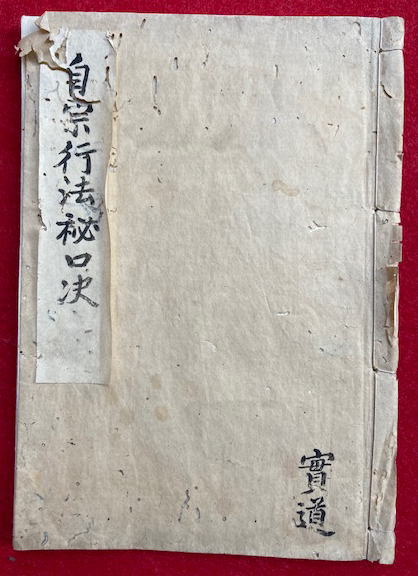 自宗行法秘口决
實道